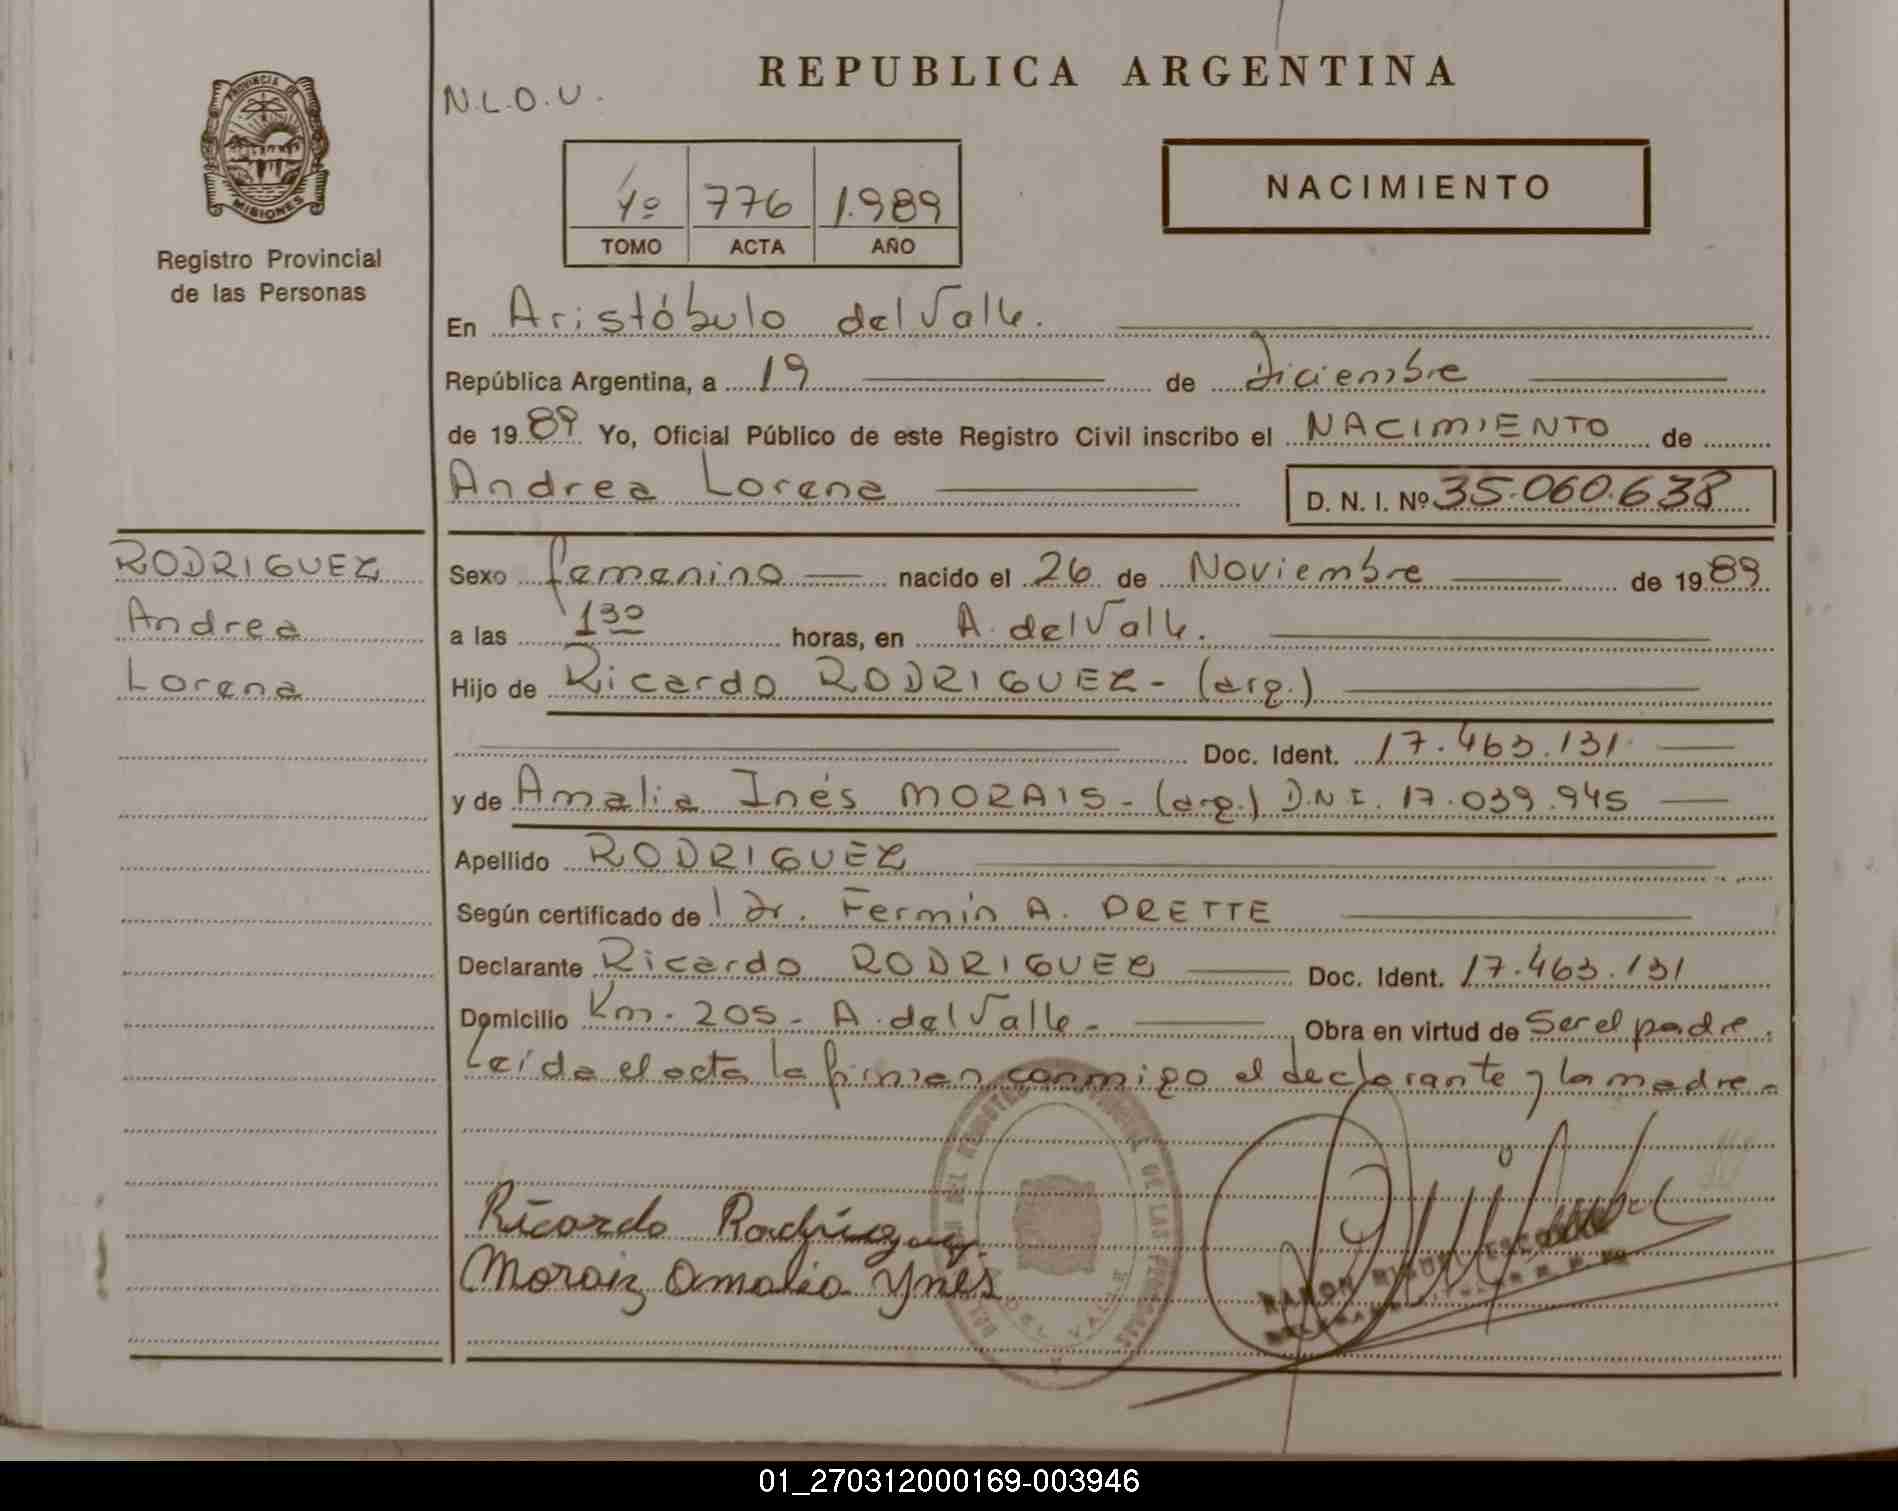 REPUBLICA ARGENTINA
N.L.O.U.
PROVINCIA DE
MISIONES
Registro Provincial
de las Personas
1º 776 1.989
TOMO ACTA AÑO
NACIMIENTO
En Aristóbulo del Valle.
República Argentina, a 19 de Diciembre
de 1989 Yo, Oficial Público de este Registro Civil inscribo el NACIMIENTO de
Andrea Lorena D. N. I. Nº 35.060.638
RODRIGUEZ
Andrea
Lorena
Sexo femenino nacido el 26 de Noviembre de 1989
a las 1 30 horas, en A. del Valle.
Hijo de Ricardo RODRIGUEZ - (arg.)
Doc. Ident. 17.463.131
y de Amalia Inés MORAIS - (arg.) D.N.I. 17.039.945
Apellido RODRIGUEZ
Según certificado de l Dr. Fermín A. ORETTE
Declarante Ricardo RODRIGUEZ Doc. Ident. 17.463.131
Domicilio Km. 205 - A. del Valle - Obra en virtud de Ser el padre.
Leída el acta la firman conmigo el declarante y la madre.
Ricardo Rodríguez.
Morais Amalia Ynés
DEL VALLE
RAMON MIGUEL
01_270312000169-003946